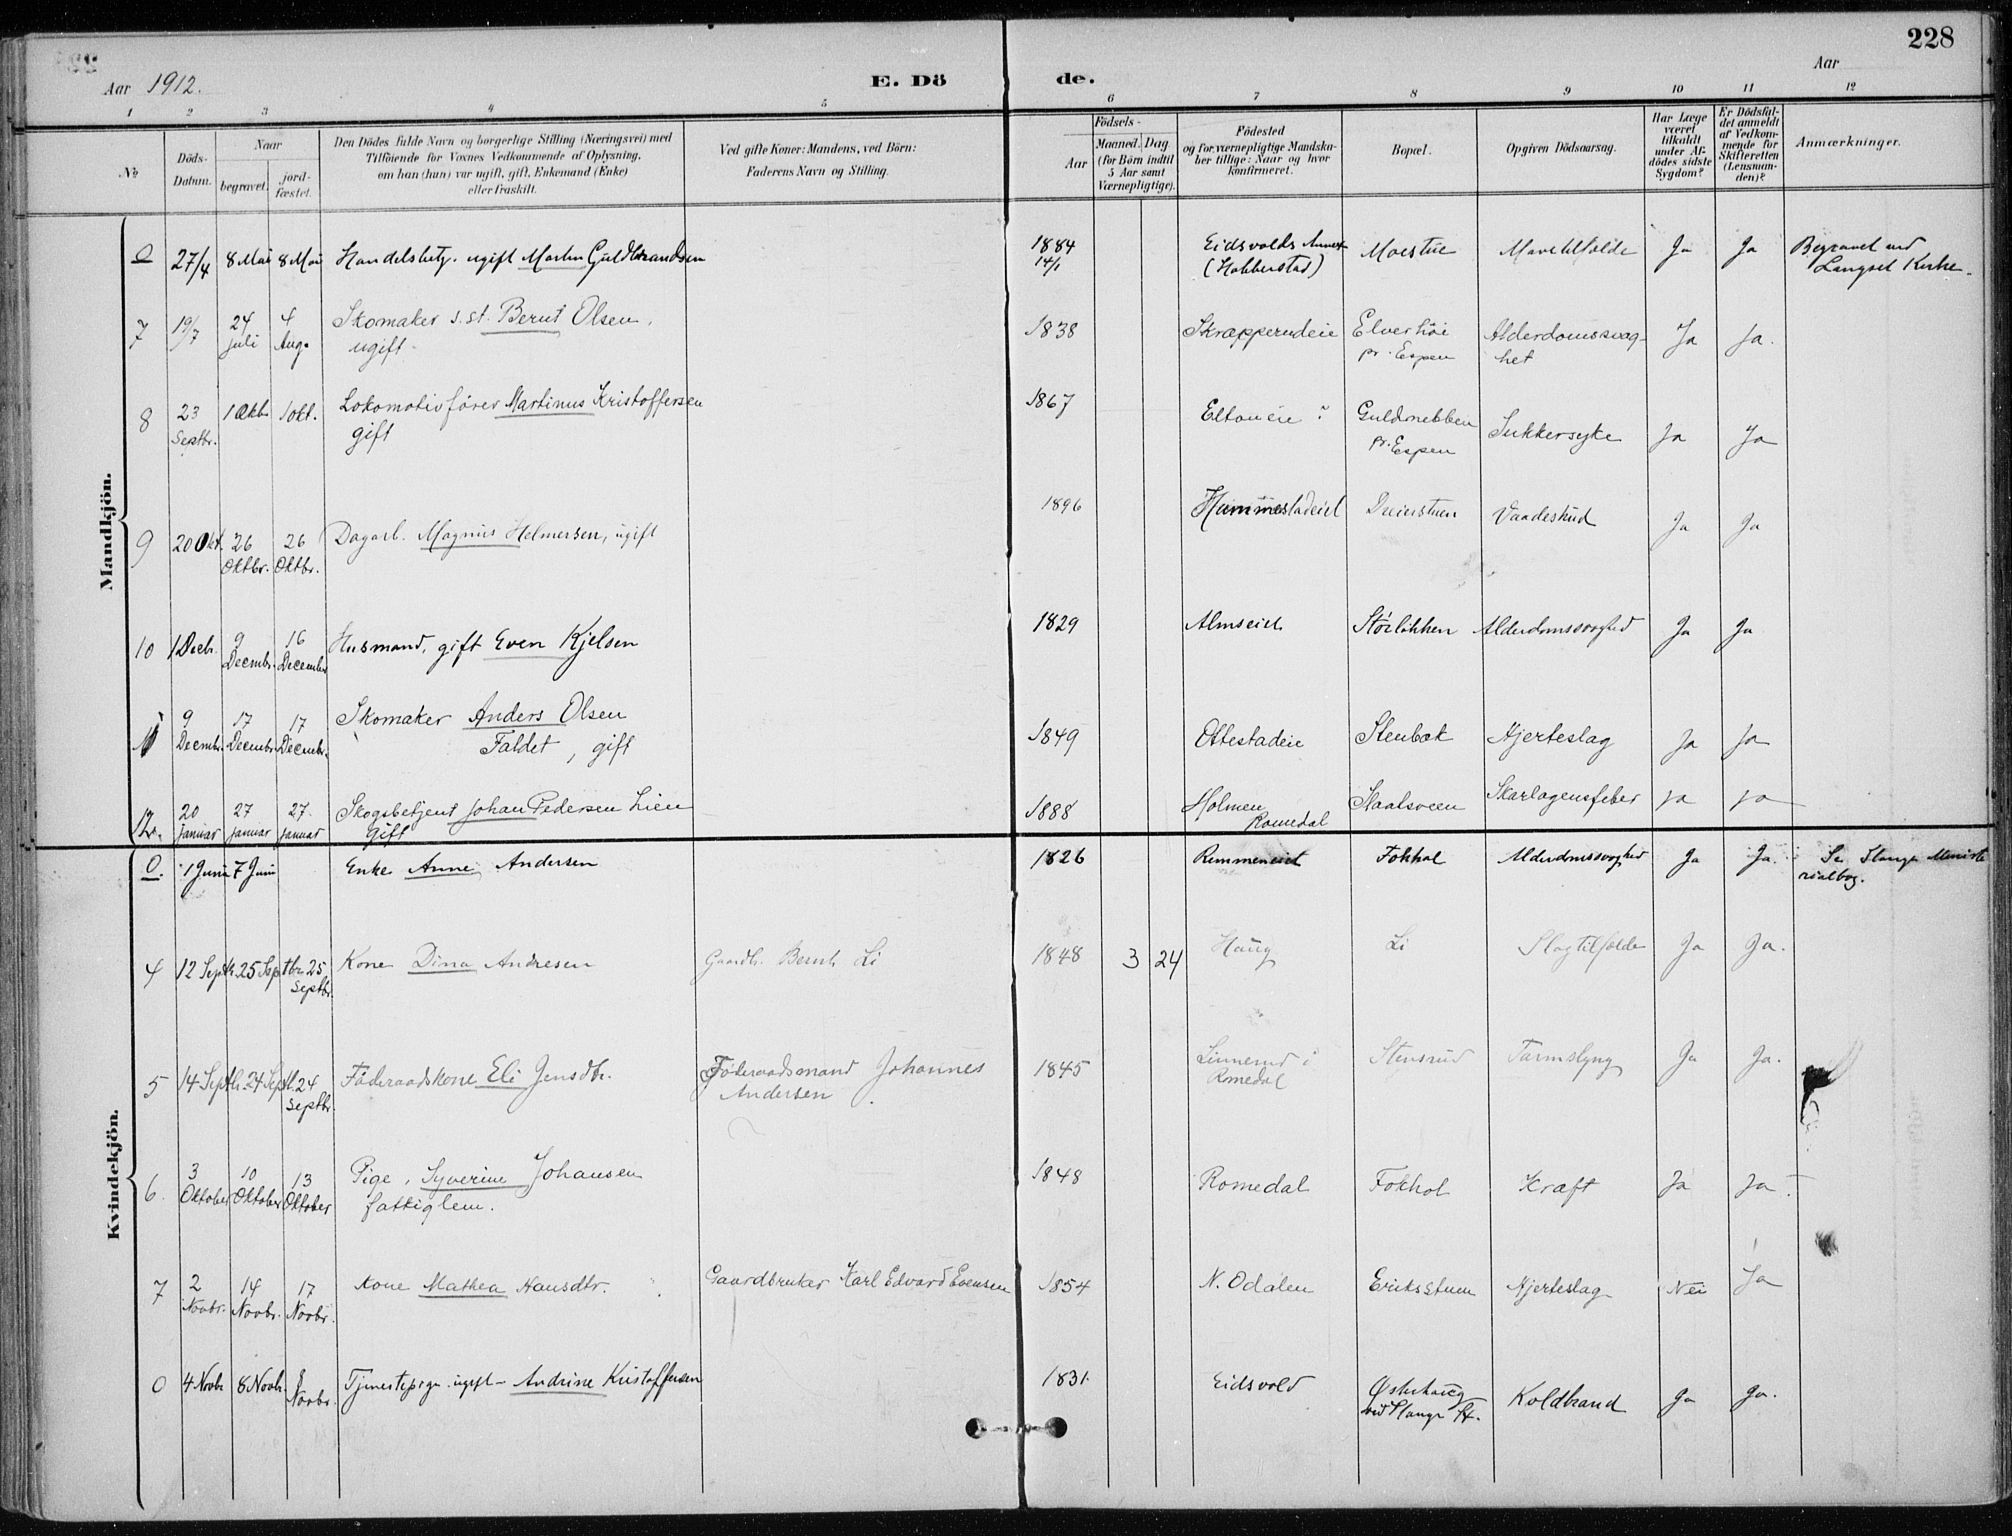 228
Aar 1912.
E. Dö de.
Aar
1 2 3 4 5 6 7 8 9 10 11 12
No
Döds-Datum.
Naar
begravet.
jord-fæstet.
Den Dödes fulde Navn og borgerlige Stilling (Næringsvei) med
Tilföiende for Voxnes Vedkommende af Oplysning,
om han (hun) var ugift, gift, Enkemand (Enke)
eller fraskilt.
Ved gifte Koner: Mandens, ved Börn:
Faderens Navn og Stilling.
Födsels-
Aar
Maaned. Dag
(for Börn indtil
5 Aar samt
Værnepligtige).
Födested
og for værnepligtige Mandska-
ber tillige: Naar og hvor
konfirmeret.
Bopæl.
Opgiven Dödsaarsag.
Har Læge
været
tilkaldt
under Af-
dödes sidste
Sygdom?
Er Dödsfal-
det anmeldt
af Vedkom-
mende for
Skifteretten
(Lensman-
den)?
Anmærkninger.
Mandkjön.
0 27/4 8 Mai 8 Mai Handelsbetj. ugift Martin Guldbrandsen 1884 14/1 Eidsvolds Annex (Habberstad) Moestue Mavetilfælde Ja Ja Begravet ved Langset Kirke.
7 19/7 24 Juli 4 Aug. Skomaker s.st. Bernt Olsen, ugift 1838 Skræpperudeie Elverhöi pr. Espen Alderdomssvag-het Ja Ja.
8 23 Septbr. 1 Oktb. 1 okt. Lokomotivförer Martinus Kristoffersen gift 1867 Eltoneie ? Guldnebben pr. Espen Sukkersyke Ja Ja
9 20 Okt. 26 Oktbr. 26 Oktbr. Dagarb. Magnus Helmersen, ugift 1896 Hummestadeiet Vaadeskud Ja Ja
10 1 Decb. 9 Decmbr. 16 December Husmand, gift Even Kjelsen 1829 Almseiet Störlökken Alderdomssvaghed Ja Ja
11 9 Decmbr. 17 Decembr. 17 Decembr. Skomaker Anders Olsen Faldet, gift 1849 Ottestadeie Stenbæk Hjerteslag Ja Ja
12. 20 januar 27 januar 27. januar Skogsbetjent Johan Pedersen Lien Gift 1888 Holmen Romedal Staalsveen Skarlagensfeber Ja Ja
Kvindekjön.
0. 1 Juni 7 Juni Enke Anne Andersen 1826 Remmeneiet Fokhol Alderdomssvaghed Ja Ja. Se Stange Ministe rialbog.
4 12 Septbr. 25 Septbr. 25 Septbr. Kone Dina Andresen Gaardb. Bernt Li 1848 3 24 Haug Li Slagtilfælde Ja Ja.
5 14 Septbr. 24 Septbr. 24 Septbr. Föderaadskone Eli Jensdtr. Föderaadsmand Johannes Andersen 1845 Linnerud i Romedal Stensrud Tarmslyng Ja Ja.
6. 3 Oktober 10 Oktober 13 Oktober Pige, Syverine Johansen fattiglem. 1848 Romedal Fokhol Kræft Ja Ja.
7 2 Novbr. 14 Novbr. 17 Novbr. Kone Mathea Hansdtr. Gaardbruker Karl Edvard Evensen 1854 N. Odalen Eriksstuen Hjerteslag Nei Ja
0 4 Novbr 8 Novb. 8 Novbr. Tjenestepige ugift - Andrine Kristoffersen 1831. Eidsvold Østerhaug ved Stange St. Koldbrand Ja Ja.